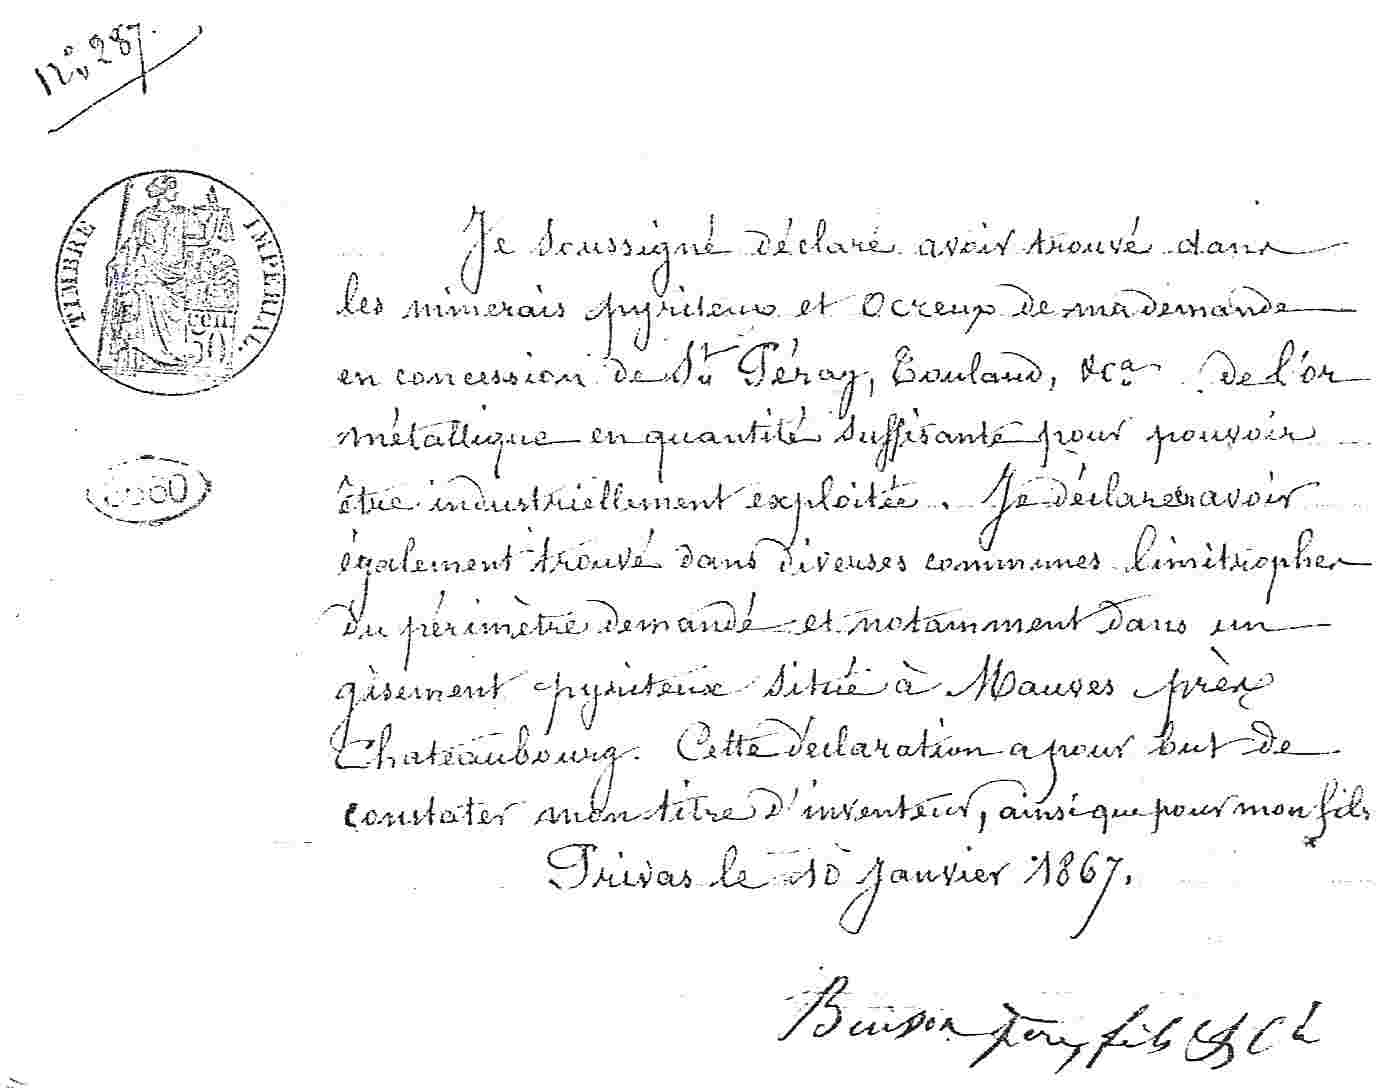 N° 287.
TIMBRE IMPERIAL.
50 cen
Je soussigné déclare avoir trouvé dans
les minerais pyriteux et ocreux de ma demande
en concession de St Péray, Touland, &ca de l'or
métallique en quantité suffisante pour pouvoir
être industriellement exploitée. Je déclare avoir
également trouvé dans diverses communes limitrophes
du périmètre demandé et notamment dans un
gisement pyriteux situé à Mauves près
Chateaubourg. Cette déclaration a pour but de
constater mon titre d'inventeur, ainsi que pour mon fils
Privas le 10 Janvier 1867.
père, fils & Cie